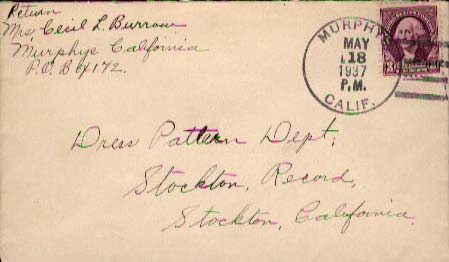 Return
Mrs. Cecil L. Burrow
Murphys California
P.O. Box 172.
MURPHYS
MAY
18
1937
P.M.
CALIF.
3¢
Dress Pattern Dept;
Stockton, Record,
Stockton, California.